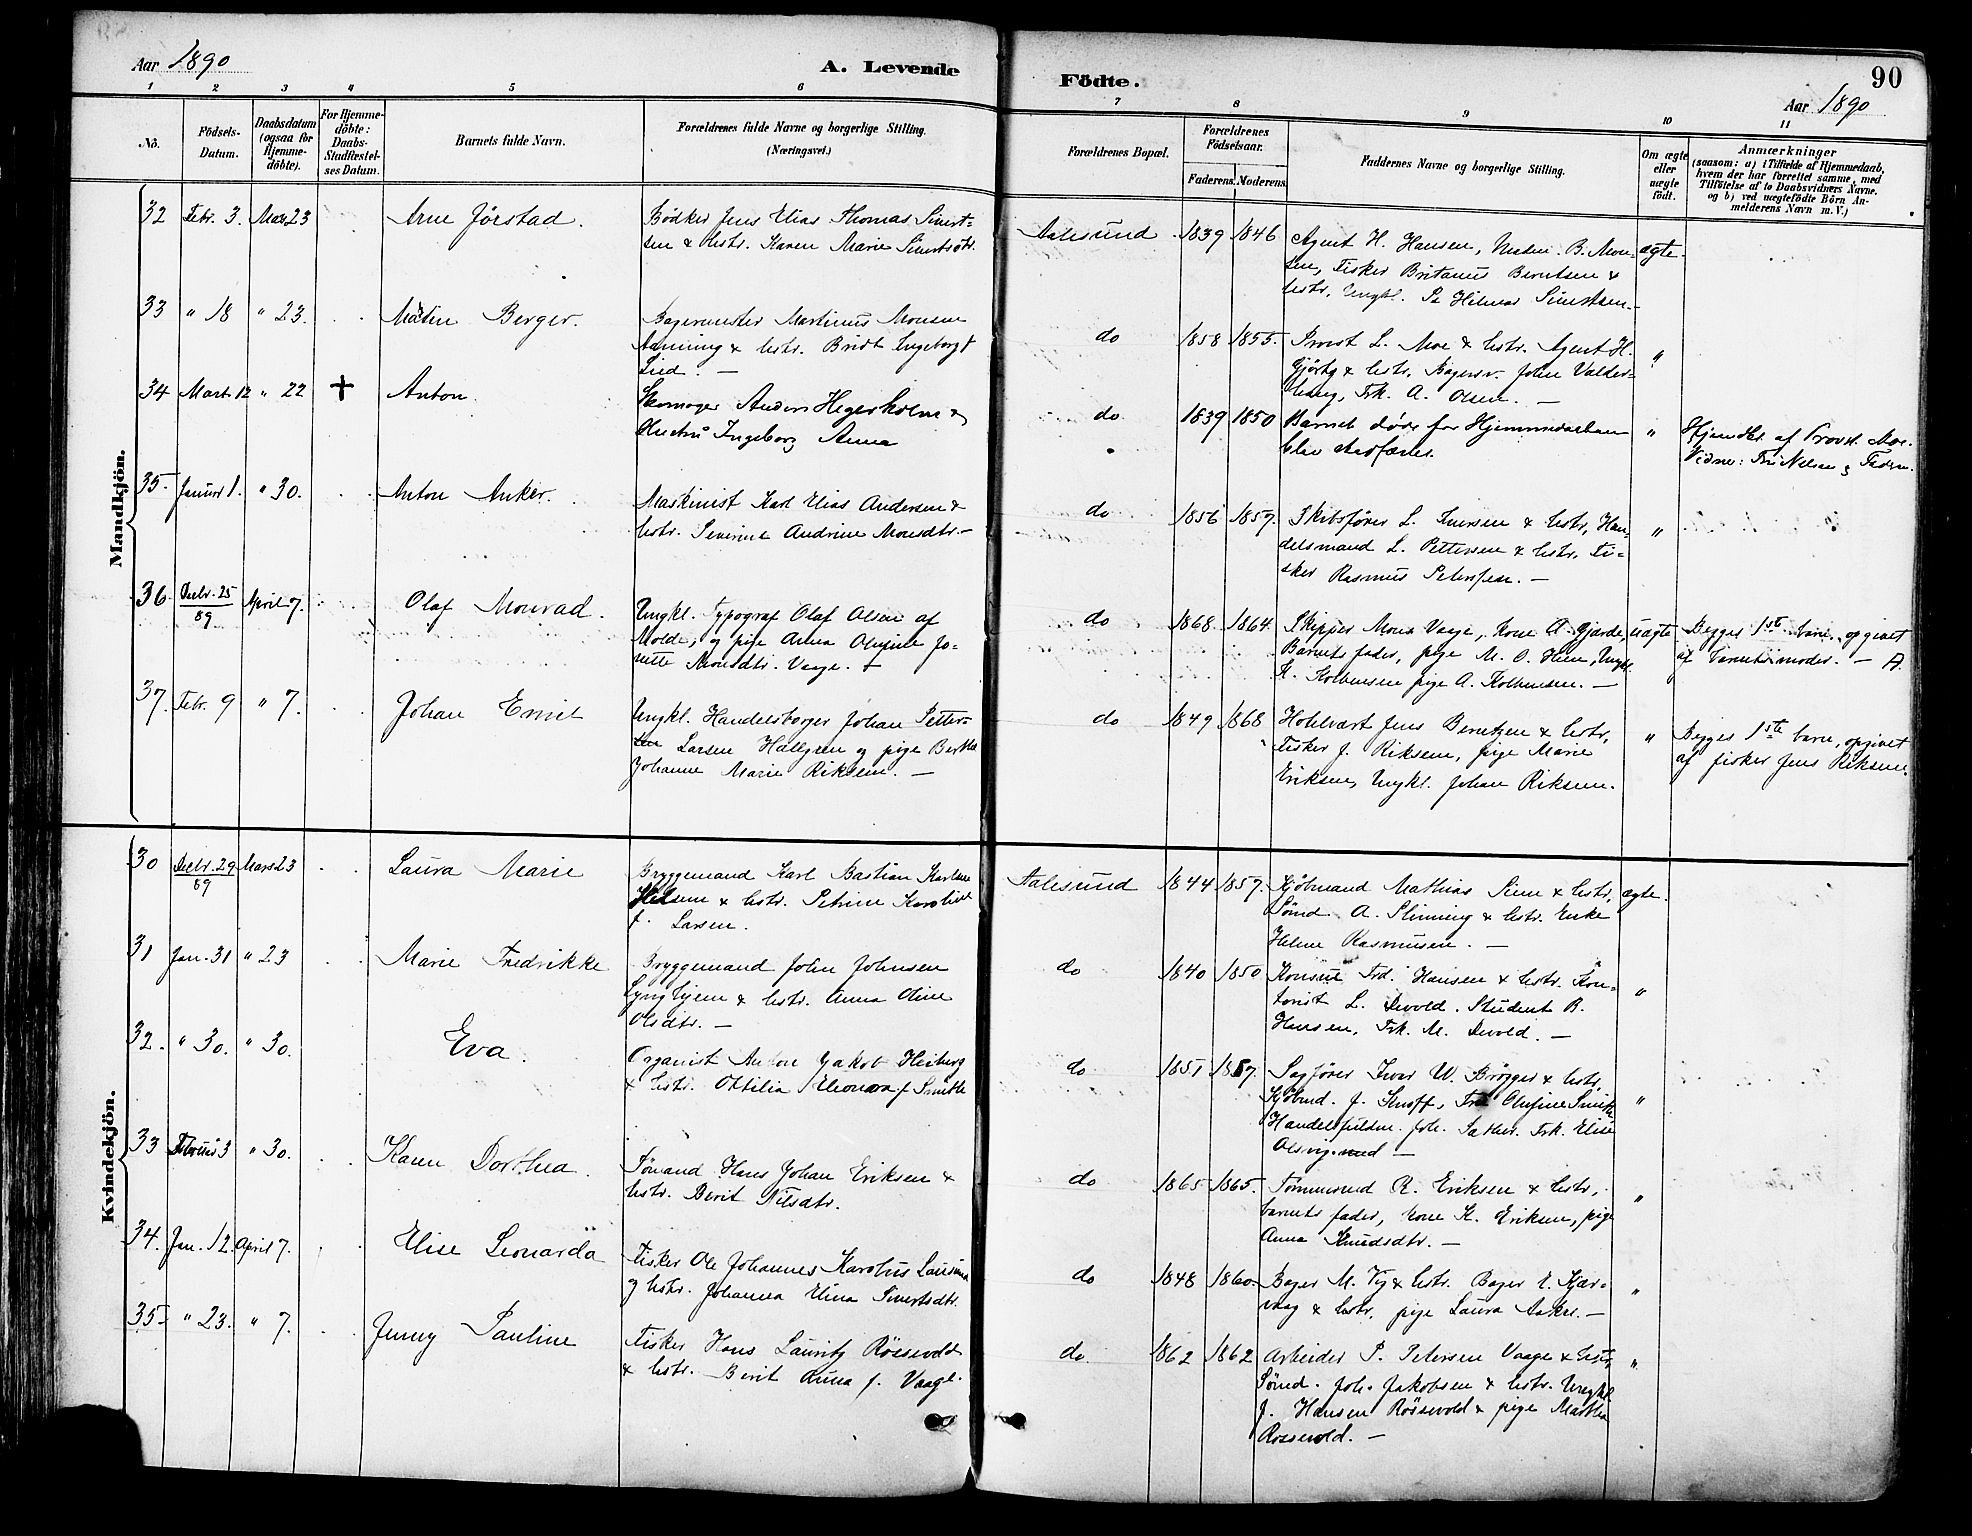 Aar 1890
A. Levende
Födte.
90
Aar 1890
1 2 3 4 5 6 7 8 9 10 11
No.
Födsels-
Datum.
Daabsdatum
(ogsaa for
Hjemme-
döbte).
For Hjemme-
döbte:
Daabs-
Stadfæstel-
ses Datum.
Barnets fulde Navn.
Forældrenes fulde Navne og borgerlige Stilling.
(Næringsvei.)
Forældrenes Bopæl.
Forældrenes
Födselsaar.
Faderens. Moderens.
Faddernes Navne og borgerlige Stilling.
Om ægte
eller
uægte
født.
Anmærkninger
(saasom: a) i Tilfælde af Hjemmedaab,
hvem der har forrettet samme, med
Tilföielse af to Daabsvidners Navne.
og b) ved uægtefödte Börn An-
melderens Navn m. V.)
Mandkjön.
32 Febr. 3. Mars 23 Arne Jørstad.
Bødker Jens Elias Thomas Sivert-
sen & hstr. Karen Marie Sivertsdtr.
Aalesund 1839 1846
Agent H. Hansen, Madm. B. Mon-
sen, Fisker Britanus Berntsen &
hstr. Ungkl. Hilmar Sivertsen
ægte.
33 " 18 " 23. Martin Berger.
Bagermester Martinus Monsen
& hstr. Bridt Ingeborg f
Lied. —
do 1858 1855.
Provst L. Moe & hstr. Agent H.
Gjørtz & hstr. Bagersv. John Valder-
haug, Frk. A. Olsen. —
"
34 Mart. 12 " 22 + Anton
Skomager Anders Hegerholm &
Hustru Ingeborg Anna
do 1839 1850
Barnet døde før Hjemmedaaben
blev stadfæstet.
"
Hjemdbt. af Provst Moe.
Vidne: Fru Nelsen & Faderen.
35 Januar 1. " 30. Anton Anker.
Maskinist Karl Elias Andersen &
hstr. Severine Andrine Monsdtr. —
do 1856 1857.
Skibsfører L. Iversen & hstr, Han-
delsmand L. Pettersen & hstr. Fi-
sker Rasmus Petersen. —
"
36 Decbr. 25/89 April 7. Olaf Monrad.
Ungkl. Typograf Olaf Olsen af
Molde, og pige Anna Olufine Jo-
nette Monsdtr. Vaage. +
do 1868. 1864.
Skipper Mons Vaage, Kone A. Gjærde,
Barnets fader, pige M. O. Ungkl.
K. Kolbensen pige A. Kolbensen. —
uægte
Begges 1ste barn, opgivet
af barnets moder. — A
37. Febr. 9 " 7. Johan Emil
Ungkl. Handelsborger Johan Petter-
sen Larsen Hallgren og pige Berthe
Johanne Marie Riksem. —
do 1849 1868
Hotelvært Jens Berntzen & hstr,
Fisker J. Riksem, pige Marie
Eriksen, Ungkl. Johan Riksem.
"
Begges 1ste barn, opgivet
af fisker Jens Riksem.
Kvindekjön.
30 Decbr. 29/89 Mars 23 Laura Marie
Bryggemand Karl Bastian Karlsen
& hstr. Petrine Karoline
f. Larsen.
Aalesund 1844 1857.
Kjøbmand Mathias Siem & hstr,
Sømd. A. Slinning & hstr. Enke
Helene Rasmusen. —
ægte.
31 Jan. 31 " 23 Marie Fredrikke
Bryggemand John Johnsen
Lyngbjem & hstr. Anna Oline
Olsdtr. —
do 1840 1850
Konsul Frd. Hansen & hstr. Kon-
torist L. Devold. Student R.
Hansen, Frk. M. Devold. —
"
32. " 30. " 30. Eva.
Organist Anton Jakob Heiberg
& hstr. Ottilia Eleonora f Smith
do 1851 1857.
Sagfører Iver W. Brøgger & hstr.
Kjøbmd. J. Knoff, Frk Olufine Smith
Handelsfuldm. Joh. Sather. Frk. Elise
Olsvig. —
"
33 Februar 3 " 30. Karen Dorthea.
Sømand Hans Johan Eriksen &
hstr. Berit Nilsdtr.
do 1865 1865.
Tømmermd R. Eriksen & hstr,
barnets fader, kone K. Eriksen, pige
Anna Knudsdtr. —
"
34. Jan. 12. April 7. Elise Leonarda
Fisker Ole Johannes Karolus
og hstr. Johanna Elina Sivertsdtr.
do 1848 1860.
Bager M. Vig & hstr. Bager E. Kjær-
vaag & hstr, pige Laura —
"
35 " 23. " 7. Jenny Pauline
Fisker Hans Lauritz Røssevold
& hstr. Berit Anna f. Vaage.
do. 1862 1862
Arbeider P. Petersen Vaage & hstr,
Sømd. Joh. Jakobsen & hstr. Ungkl
J. Hansen Røssevold & pige Martha
Røssevold. —
"